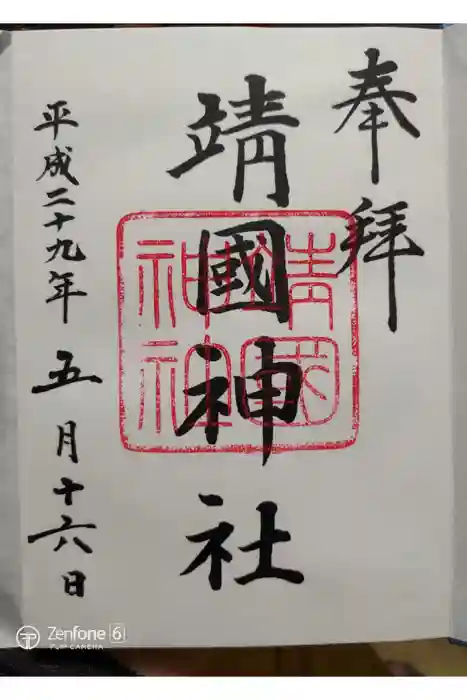 奉拜
靖國神社
靖國
神社
平成二十九年五月十六日
Zenfone 6